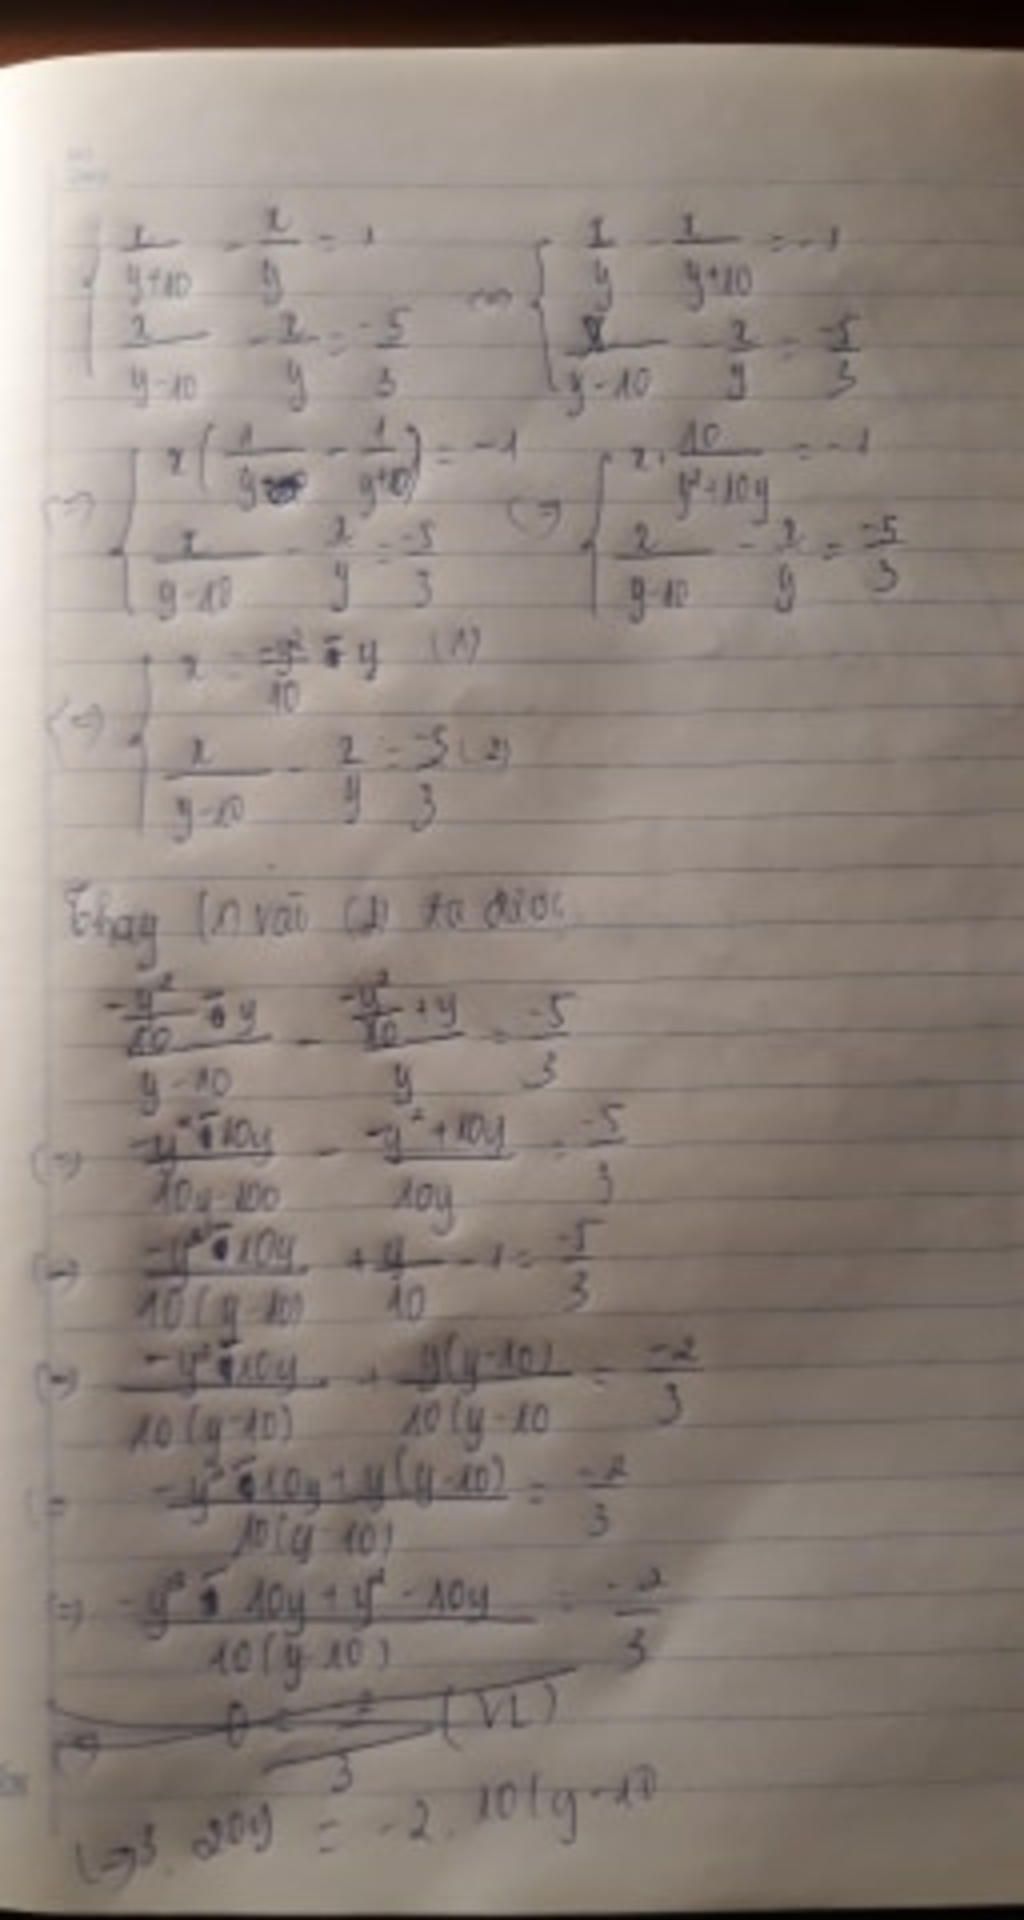 { x/(y+10) - x/y = 1 ; x/(y-10) - x/y = -5/3 <=> { x/y - x/(y+10) = -1 ; x/(y-10) - x/y = -5/3
<=> { x(1/y - 1/(y+10)) = -1 ; x/(y-10) - x/y = -5/3 <=> { x. 10/(y²+10y) = -1 ; x/(y-10) - x/y = -5/3
<=> { x = -y²/10 - y (1) ; x/(y-10) - x/y = -5/3 (2)
Thay (1) vào (2) ta được
(-y²/10 - y)/(y-10) - (-y²/10 + y)/y = -5/3
<=> (-y² - 10y)/(10y-100) - (-y² + 10y)/10y = -5/3
<=> (-y² - 10y)/10(y-10) + y/10 - 1 = -5/3
<=> (-y² - 10y)/10(y-10) + y(y-10)/10(y-10 = -2/3
<= (-y² - 10y + y(y-10))/10(y-10) = -2/3
<=> (-y² - 10y + y² - 10y)/10(y-10) = -2/3
(VL)
<=> 3. 20y = -2. 10(y-10